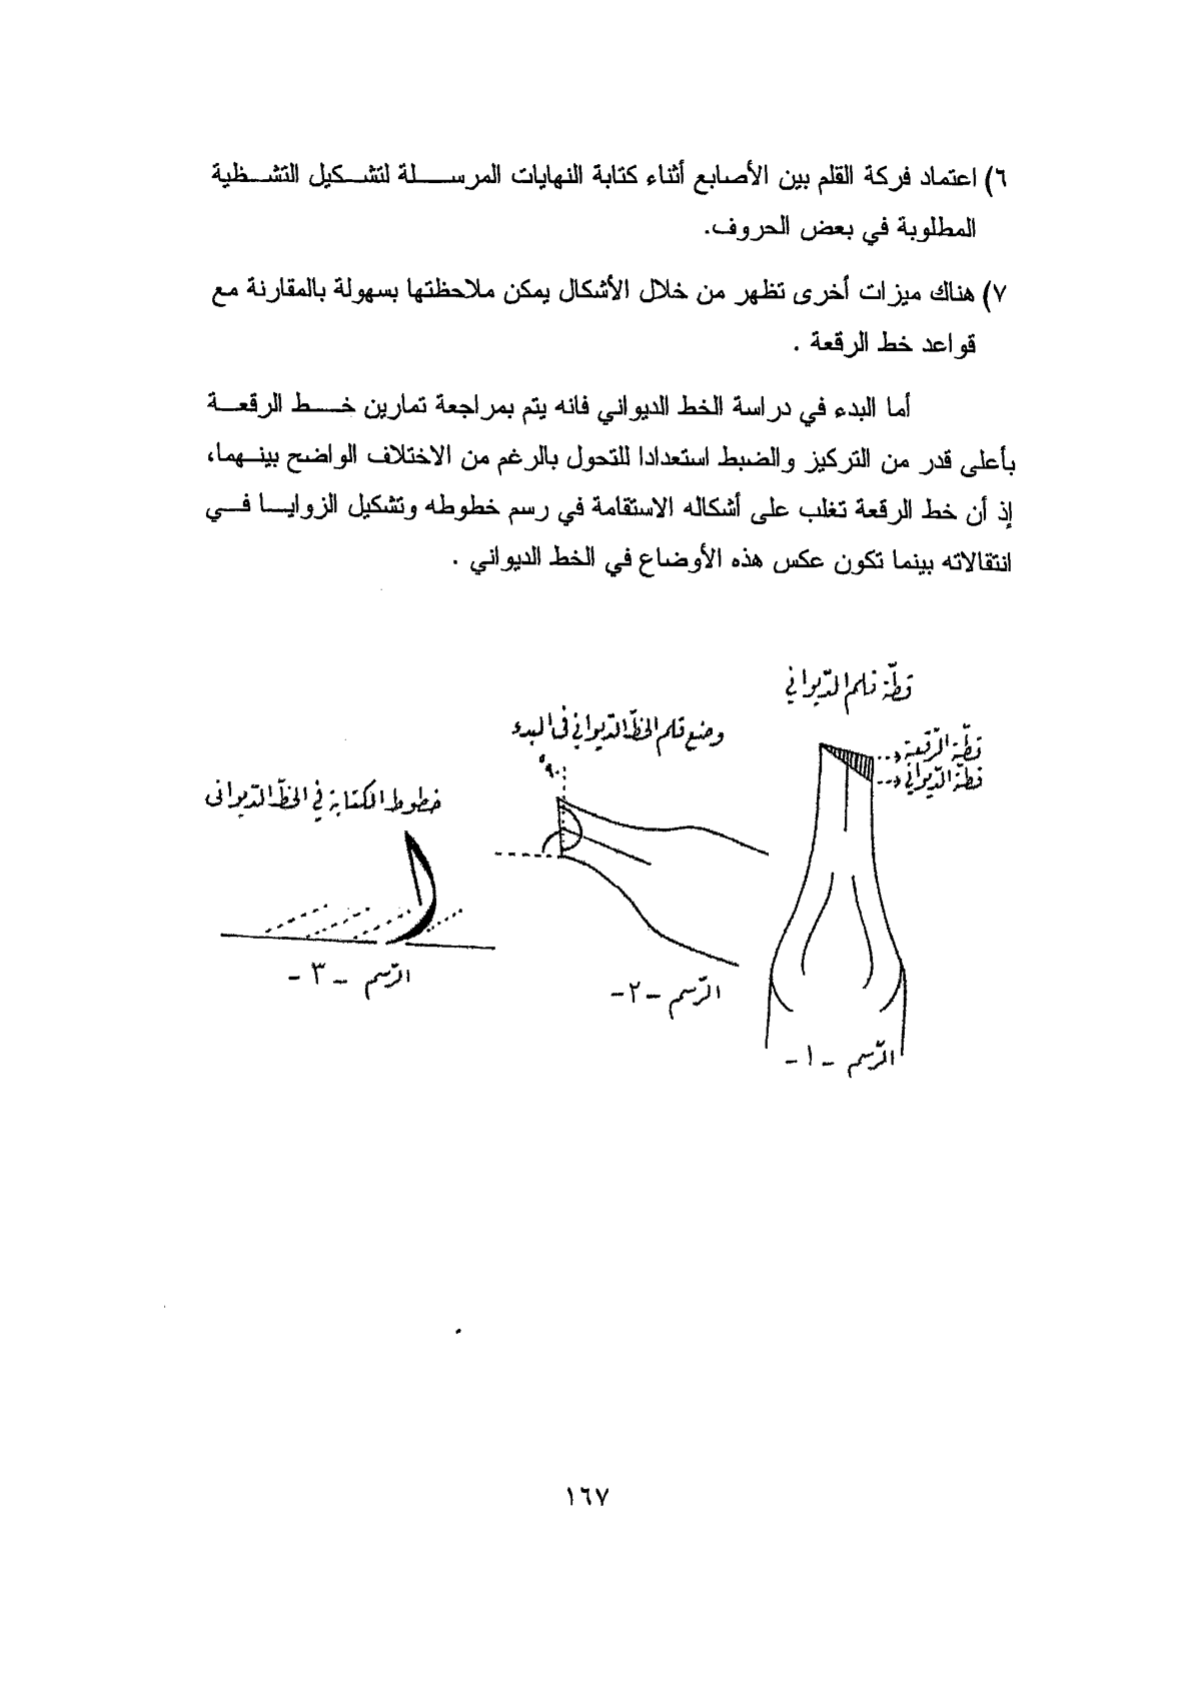 ٦) اعتماد فركة القلم بين الأصابع أثناء كتابة النهايات المرسلة لتشكيل التشظية
المطلوبة في بعض الحروف.
٧) هناك ميزات أخرى تظهر من خلال الأشكال يمكن ملاحظتها بسهولة بالمقارنة مع
قواعد خط الرقعة .
أما البدء في دراسة الخط الديواني فانه يتم بمراجعة تمارين خط الرقعة
بأعلى قدر من التركيز والضبط استعدادا للتحول بالرغم من الاختلاف الواضح بينهما،
إذ أن خط الرقعة تغلب على أشكاله الاستقامة في رسم خطوطه وتشكيل الزوايا في
انتقالاته بينما تكون عكس هذه الأوضاع في الخط الديواني .
قطّة قلم الدّيواني
قطّة الرّقعة
قطّة الدّيواني
الرّسم -١-
وضع قلم الخطّ الدّيواني في البدء
٩٠°
الرّسم -٢-
خطوط الكتابة في الخطّ الدّيوانى
الرّسم -٣-
١٦٧